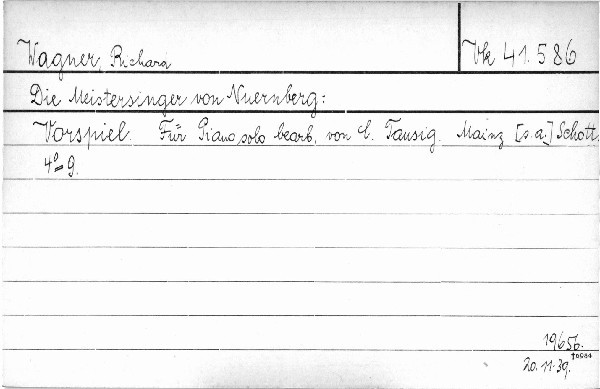 Wagner, Richard
Vk 41.586
Die Meistersinger von Nuernberg:
Vorspiel. Für Piano solo bearb. von C. Tausig. Mainz [s.a.] Schott.
4° 9.
19656.
20.11.39.